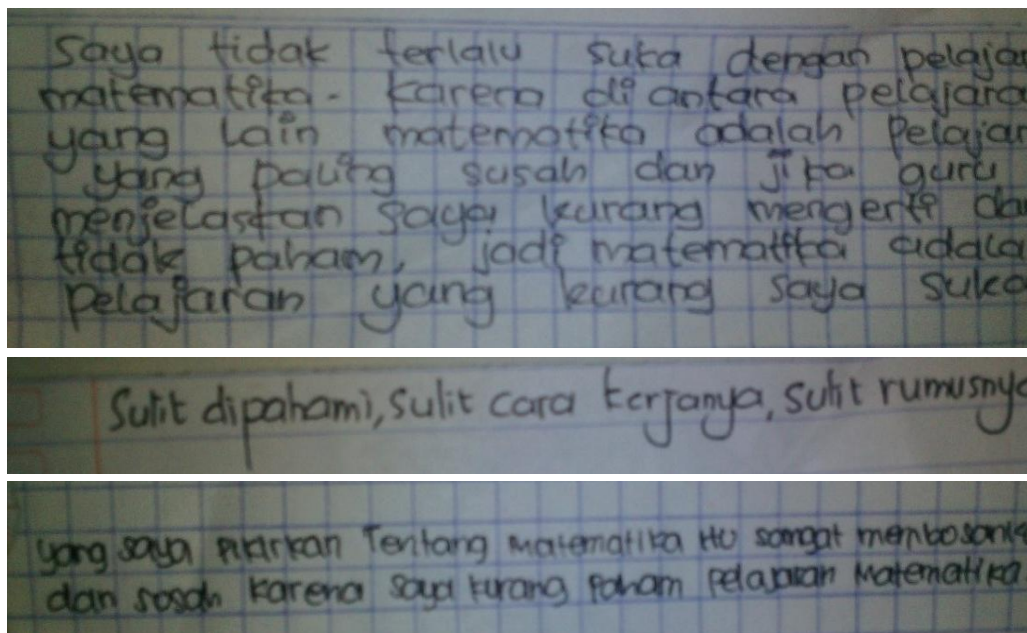 Saya tidak terlalu suka dengan pelajar
matematika. karena di antara pelajara
yang Lain matematika adalah Pelajar
yang paling susah dan jika guru
menjelaskan saya kurang mengerti da
tidak paham, jadi matematika adala
Pelajaran yang kurang saya suka
Sulit dipahami, sulit cara kerjanya, sulit rumusnya
yang saya Pikirkan Tentang Matematika itu sangat membosank
dan sosah karena saya kurang Paham Pelajaran Matematika